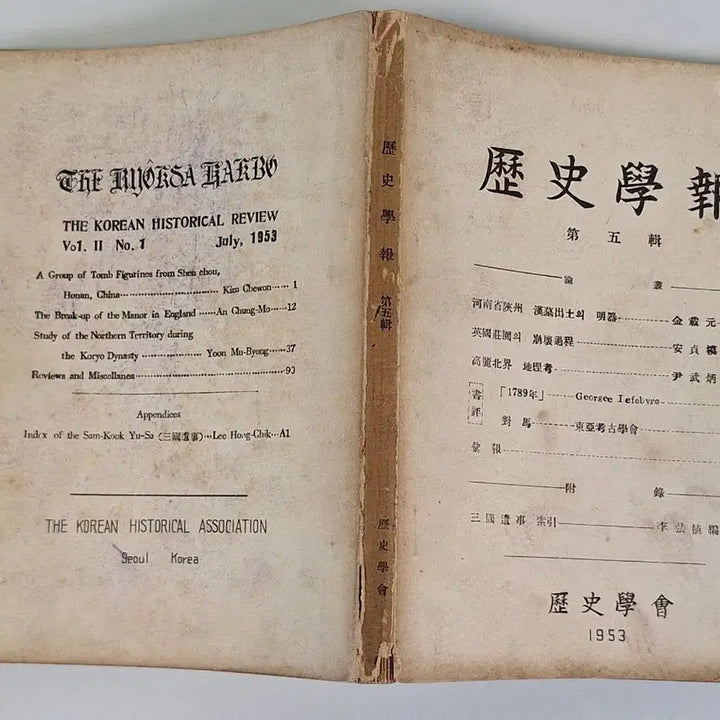 THE RYÔKSA HAKBO
THE KOREAN HISTORICAL REVIEW
Vol. II No. 1 July, 1953
A Group of Tomb Figurines from Shen chou,
Honan, China Kim Chewon 1
The Break-up of the Manor in England An Chung-Mo 12
Study of the Northern Territory during
the Koryo Dynasty Yoon Mu-Byong 37
Reviews and Miscellanea 93
Appendices
Index of the Sam-Kook Yu-Sa (三國遺事) Lee Hong-Chik A1
THE KOREAN HISTORICAL ASSOCIATION
Seoul Korea
歷史學報 第五輯 歷史學會
歷史學報
第五輯
論叢
河南省陜州 漢墓出土의 明器 金載元
英國莊園의 崩壞過程 安貞模
高麗北界 地理考 尹武炳
書評 「1789年」 Georgee Lefebvre
對馬 東亞考古學會
彙報
附錄
三國遺事 索引 李弘稙編
歷史學會
1953